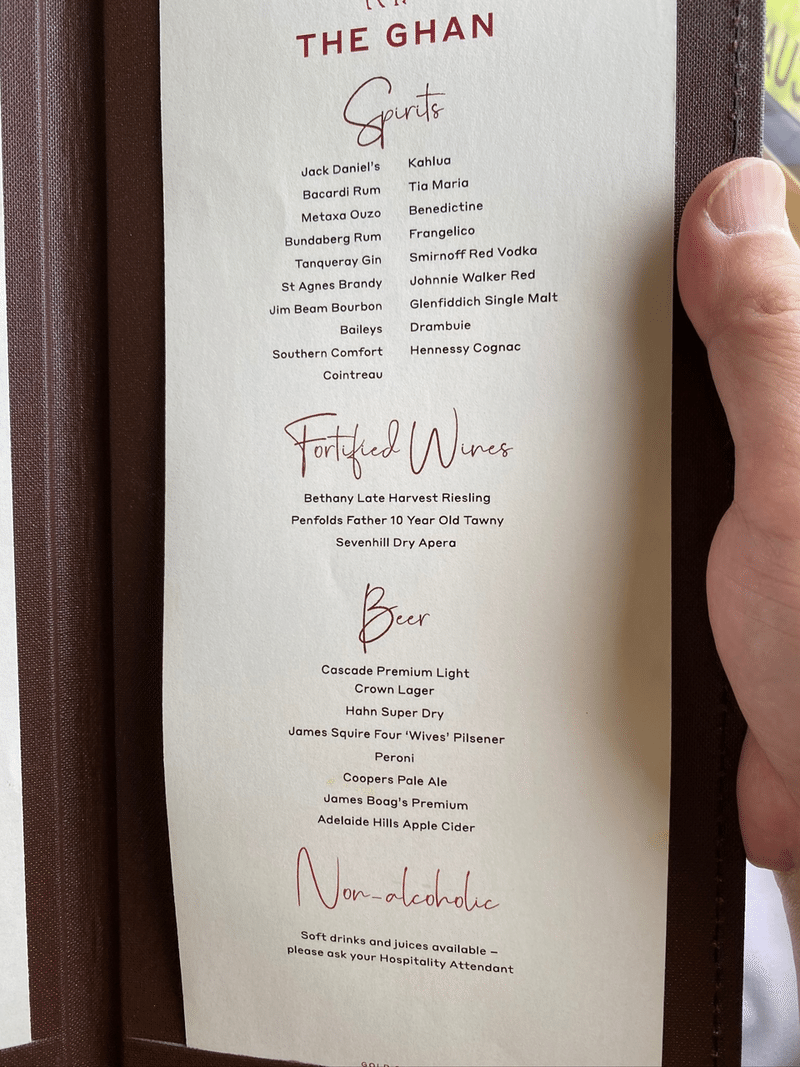 THE GHAN
Spirits
Jack Daniel's
Bacardi Rum
Metaxa Ouzo
Bundaberg Rum
Tanqueray Gin
St Agnes Brandy
Jim Beam Bourbon
Baileys
Southern Comfort
Cointreau
Kahlua
Tia Maria
Benedictine
Frangelico
Smirnoff Red Vodka
Johnnie Walker Red
Glenfiddich Single Malt
Drambuie
Hennessy Cognac
Fortified Wines
Bethany Late Harvest Riesling
Penfolds Father 10 Year Old Tawny
Sevenhill Dry Apera
Beer
Cascade Premium Light
Crown Lager
Hahn Super Dry
James Squire Four ‘Wives’ Pilsener
Peroni
Coopers Pale Ale
James Boag's Premium
Adelaide Hills Apple Cider
Non-alcoholic
Soft drinks and juices available –
please ask your Hospitality Attendant